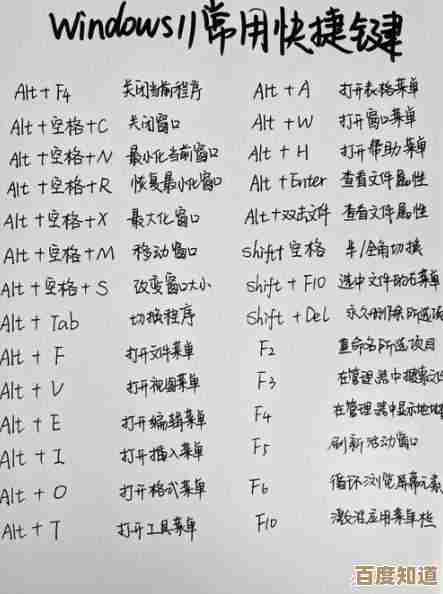 Windows11常用快捷键
Alt + F4 关闭当前程序
Alt + 空格 + C 关闭窗口
Alt + 空格 + N 最小化当前窗口
Alt + 空格 + R 恢复最小化窗口
Alt + 空格 + X 最大化窗口
Alt + 空格 + M 移动窗口
Alt + 空格 + S 改变窗口大小
Alt + Tab 切换程序
Alt + F 打开文件菜单
Alt + V 打开视图菜单
Alt + E 打开编辑菜单
Alt + I 打开插入菜单
Alt + O 打开格式菜单
Alt + T 打开工具菜单
Alt + A 打开表格菜单
Alt + W 打开窗口菜单
Alt + H 打开帮助菜单
Alt + Enter 查看文件属性
Alt + 双击文件 查看文件属性
Shift + 空格 半/全角切换
Shift + F10 选中文件的右菜单
Shift + Del 永久删除所选项
F2 重命名所选项目
F3 在管理器中搜索文件
F4 在管理器中显示地址
F5 刷新活动窗口
F6 循环浏览屏幕元素
F10 激活应用菜单栏
百度知道